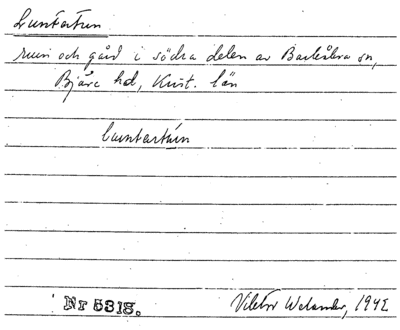 Luntertun
ruin och gård i södra delen av Barkåkra sn,
Bjäre hd, Krist. län
Luntertún
Nr 5318.
Viktor Welander, 1942